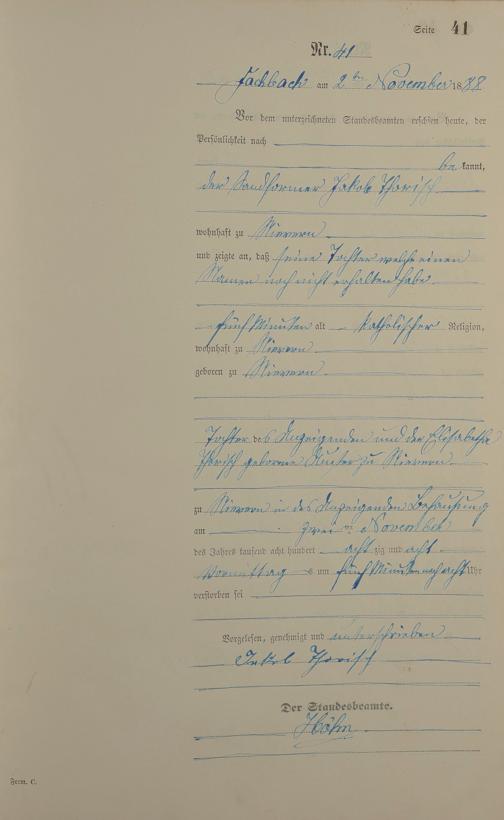 Seite 41
Nr. 41
Fachbach am 2ten November 1888
Vor dem unterzeichneten Standesbeamten erschien heute, der
Persönlichkeit nach
be kannt,
der Sandformer Jakob Thorisch
wohnhaft zu Nievern
und zeigte an, daß seine Tochter welche einen
Namen noch nicht erhalten habe
fünf Minuten alt katholischer Religion,
wohnhaft zu Nievern
geboren zu Nievern
Tochter des Anzeigenden und der Elisabetha
Thorisch geborene zu Nievern
zu Nievern in des Anzeigenden Behausung
am zweiten November
des Jahres tausend acht hundert achtzig und acht
Vormittag s um fünf Minuten nach acht Uhr
verstorben sei
Vorgelesen, genehmigt und unterschrieben
Jakob Thorisch
Der Standesbeamte.
Höhn
Form. C.